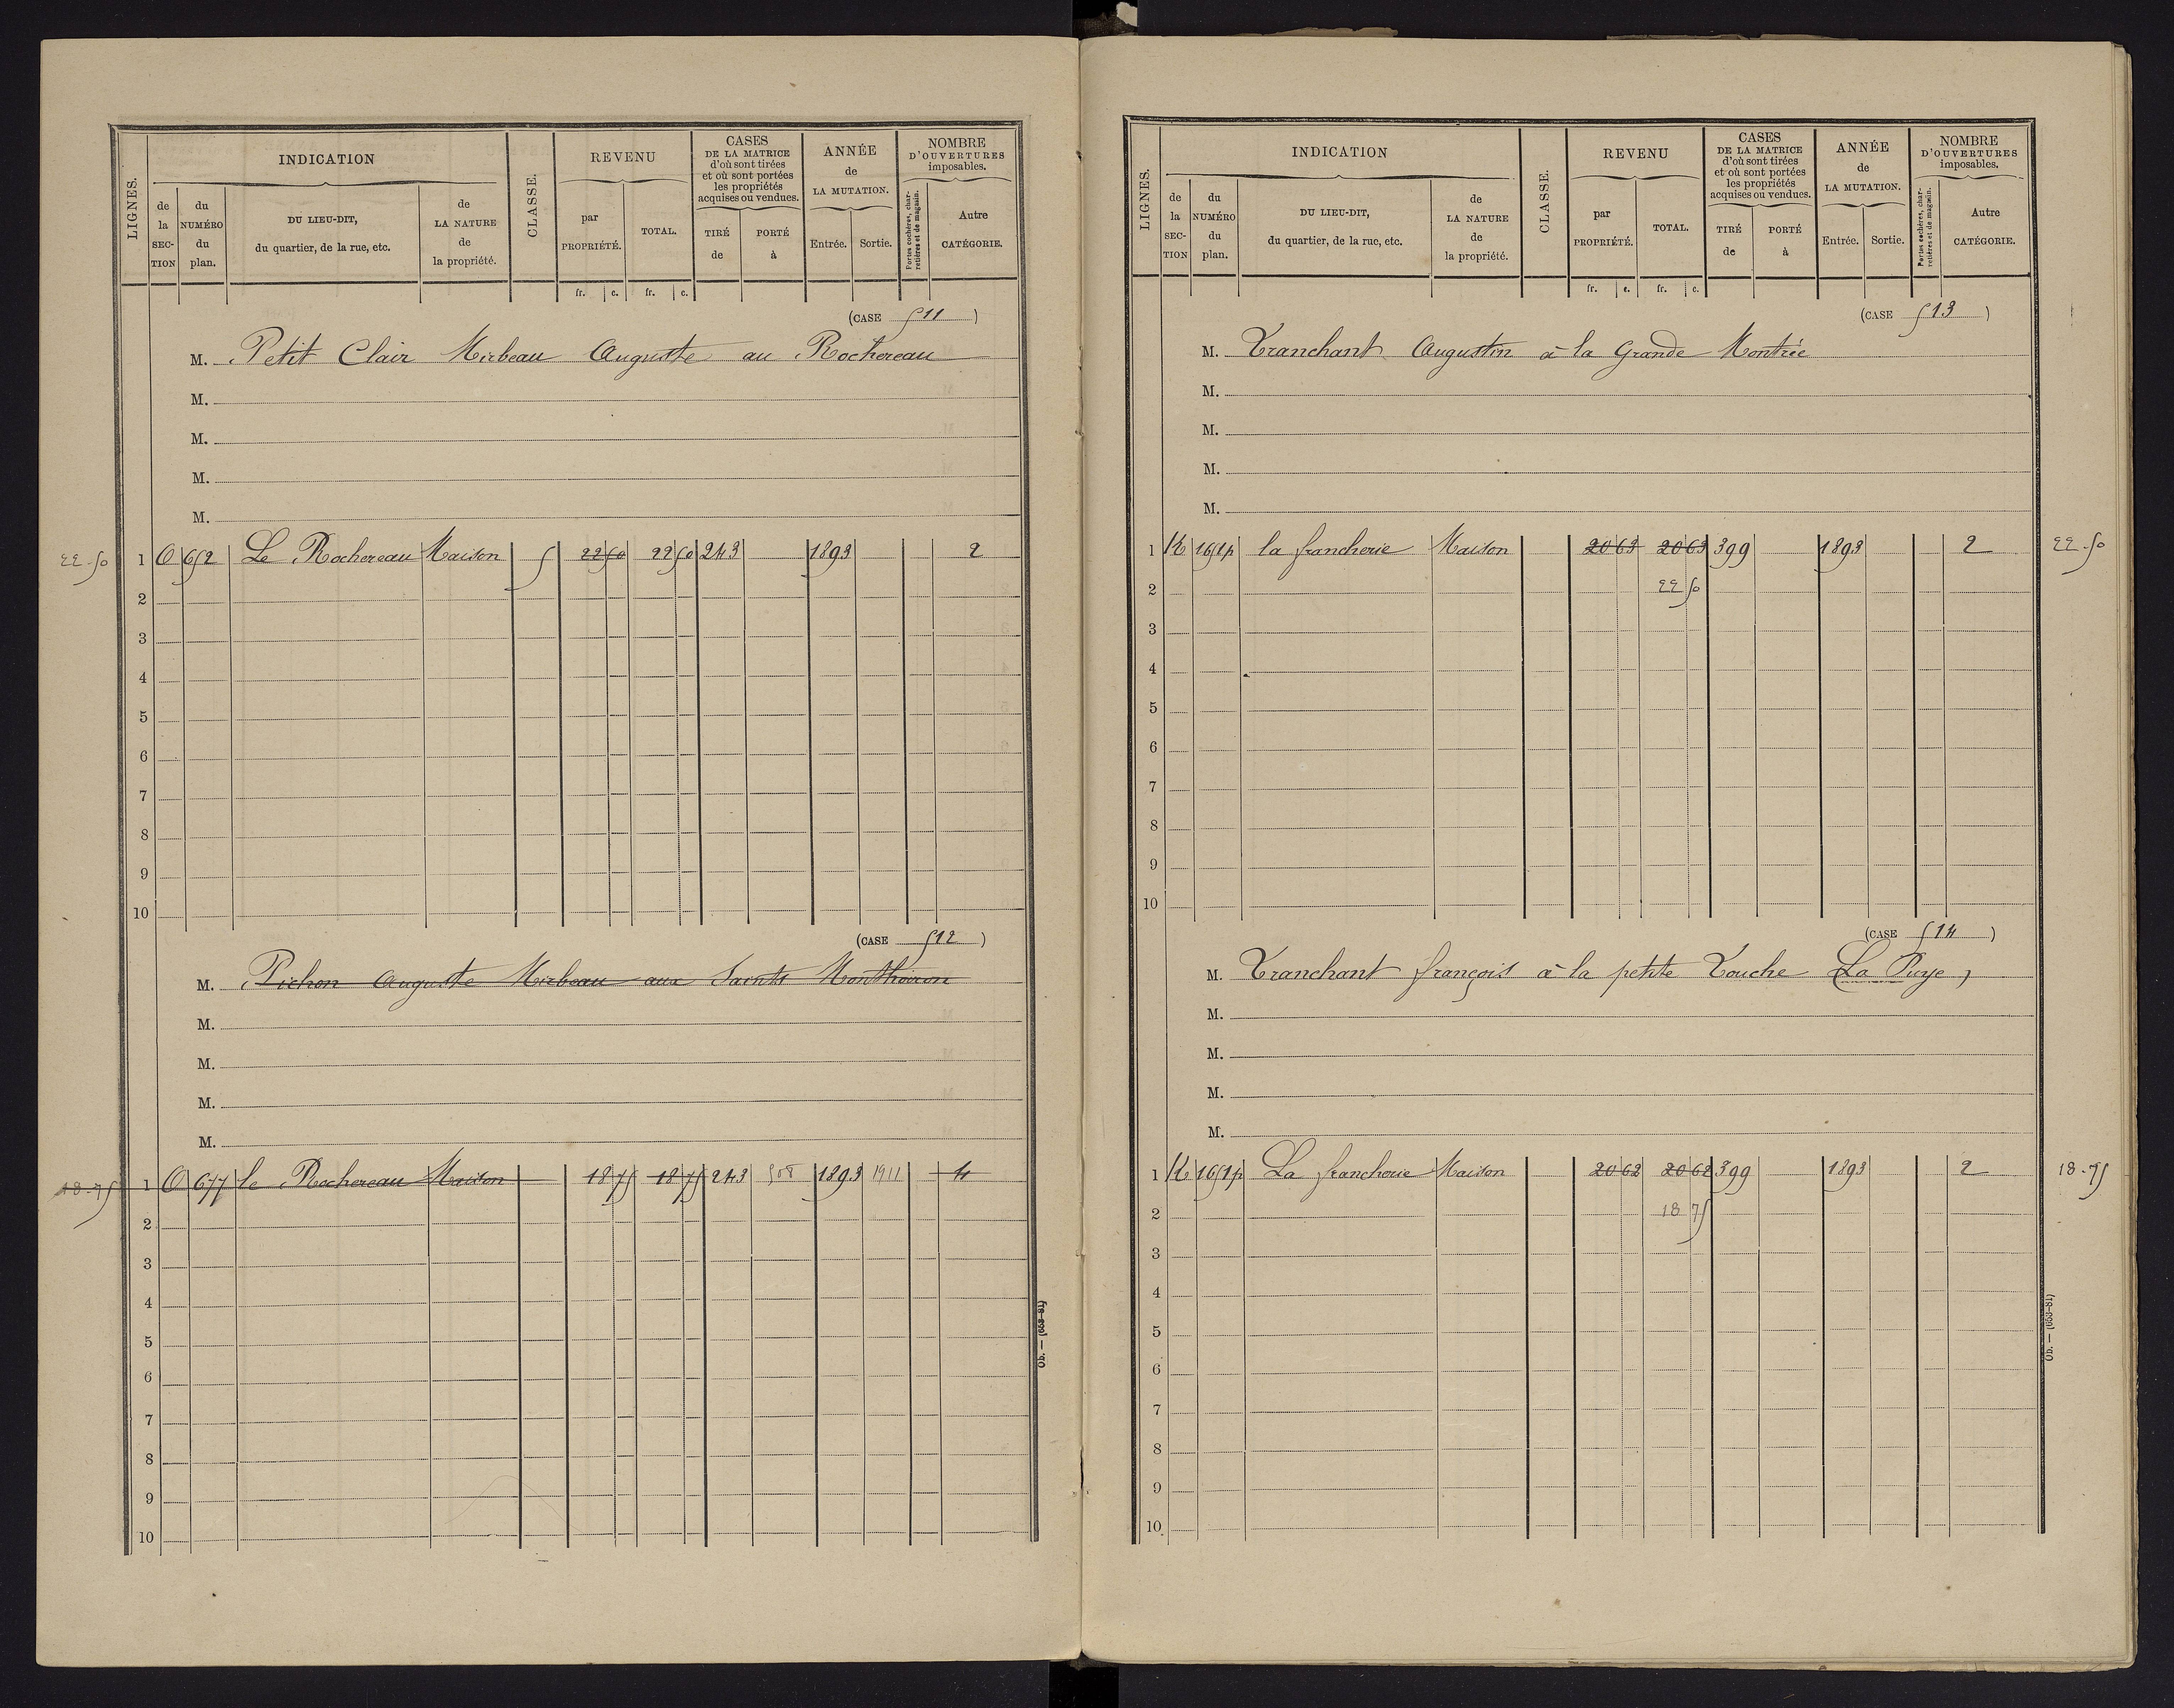 LIGNES.
INDICATION
CLASSE.
REVENU
CASES
DE LA MATRICE
d'où sont tirées
et où sont portées
les propriétés
acquises ou vendues.
ANNÉE
de
LA MUTATION.
NOMBRE
D'OUVERTURES
imposables.
de la SEC-TION
du NUMÉRO du plan.
DU LIEU-DIT,
du quartier, de la rue, etc.
de LA NATURE de la propriété.
par PROPRIÉTÉ.
TOTAL.
TIRÉ de
PORTÉ à
Entrée.
Sortie.
Portes cochères, char-retières et de magasin.
Autre CATÉGORIE.
fr. c. fr. c.
(CASE 511)
M. Petit Clair Mirbeau Auguste au Rochereau
M.
M.
M.
M.
22-50 1 O 652 Le Rochereau Maison 5 22 50 22 50 243 1893 2
2
3
4
5
6
7
8
9
10
(CASE 512)
M. Pichon Auguste Mirbeau aux Saints Monthoiron
M.
M.
M.
M.
18-75 1 O 677 le Rochereau Maison 18 75 18 75 243 508 1893 1911 4
2
3
4
5
6
7
8
9
10
Ob. — (653-81)
LIGNES.
INDICATION
CLASSE.
REVENU
CASES
DE LA MATRICE
d'où sont tirées
et où sont portées
les propriétés
acquises ou vendues.
ANNÉE
de
LA MUTATION.
NOMBRE
D'OUVERTURES
imposables.
de la SEC-TION
du NUMÉRO du plan.
DU LIEU-DIT,
du quartier, de la rue, etc.
de LA NATURE de la propriété.
par PROPRIÉTÉ.
TOTAL.
TIRÉ de
PORTÉ à
Entrée.
Sortie.
Portes cochères, char-retières et de magasin.
Autre CATÉGORIE.
fr. c. fr. c.
(CASE 513)
M. Tranchant Augustin à la Grande Montrée
M.
M.
M.
M.
1 K 1651p la francherie Maison 20 63 20 63 399 1893 2 22-50
2 22 50
3
4
5
6
7
8
9
10
(CASE 514)
M. Tranchant françois à la petite Touche (La Puye)
M.
M.
M.
M.
1 K 1651p La francherie Maison 20 62 20 62 399 1893 2 18-75
2 18 75
3
4
5
6
7
8
9
10
Ob. — (653-81)